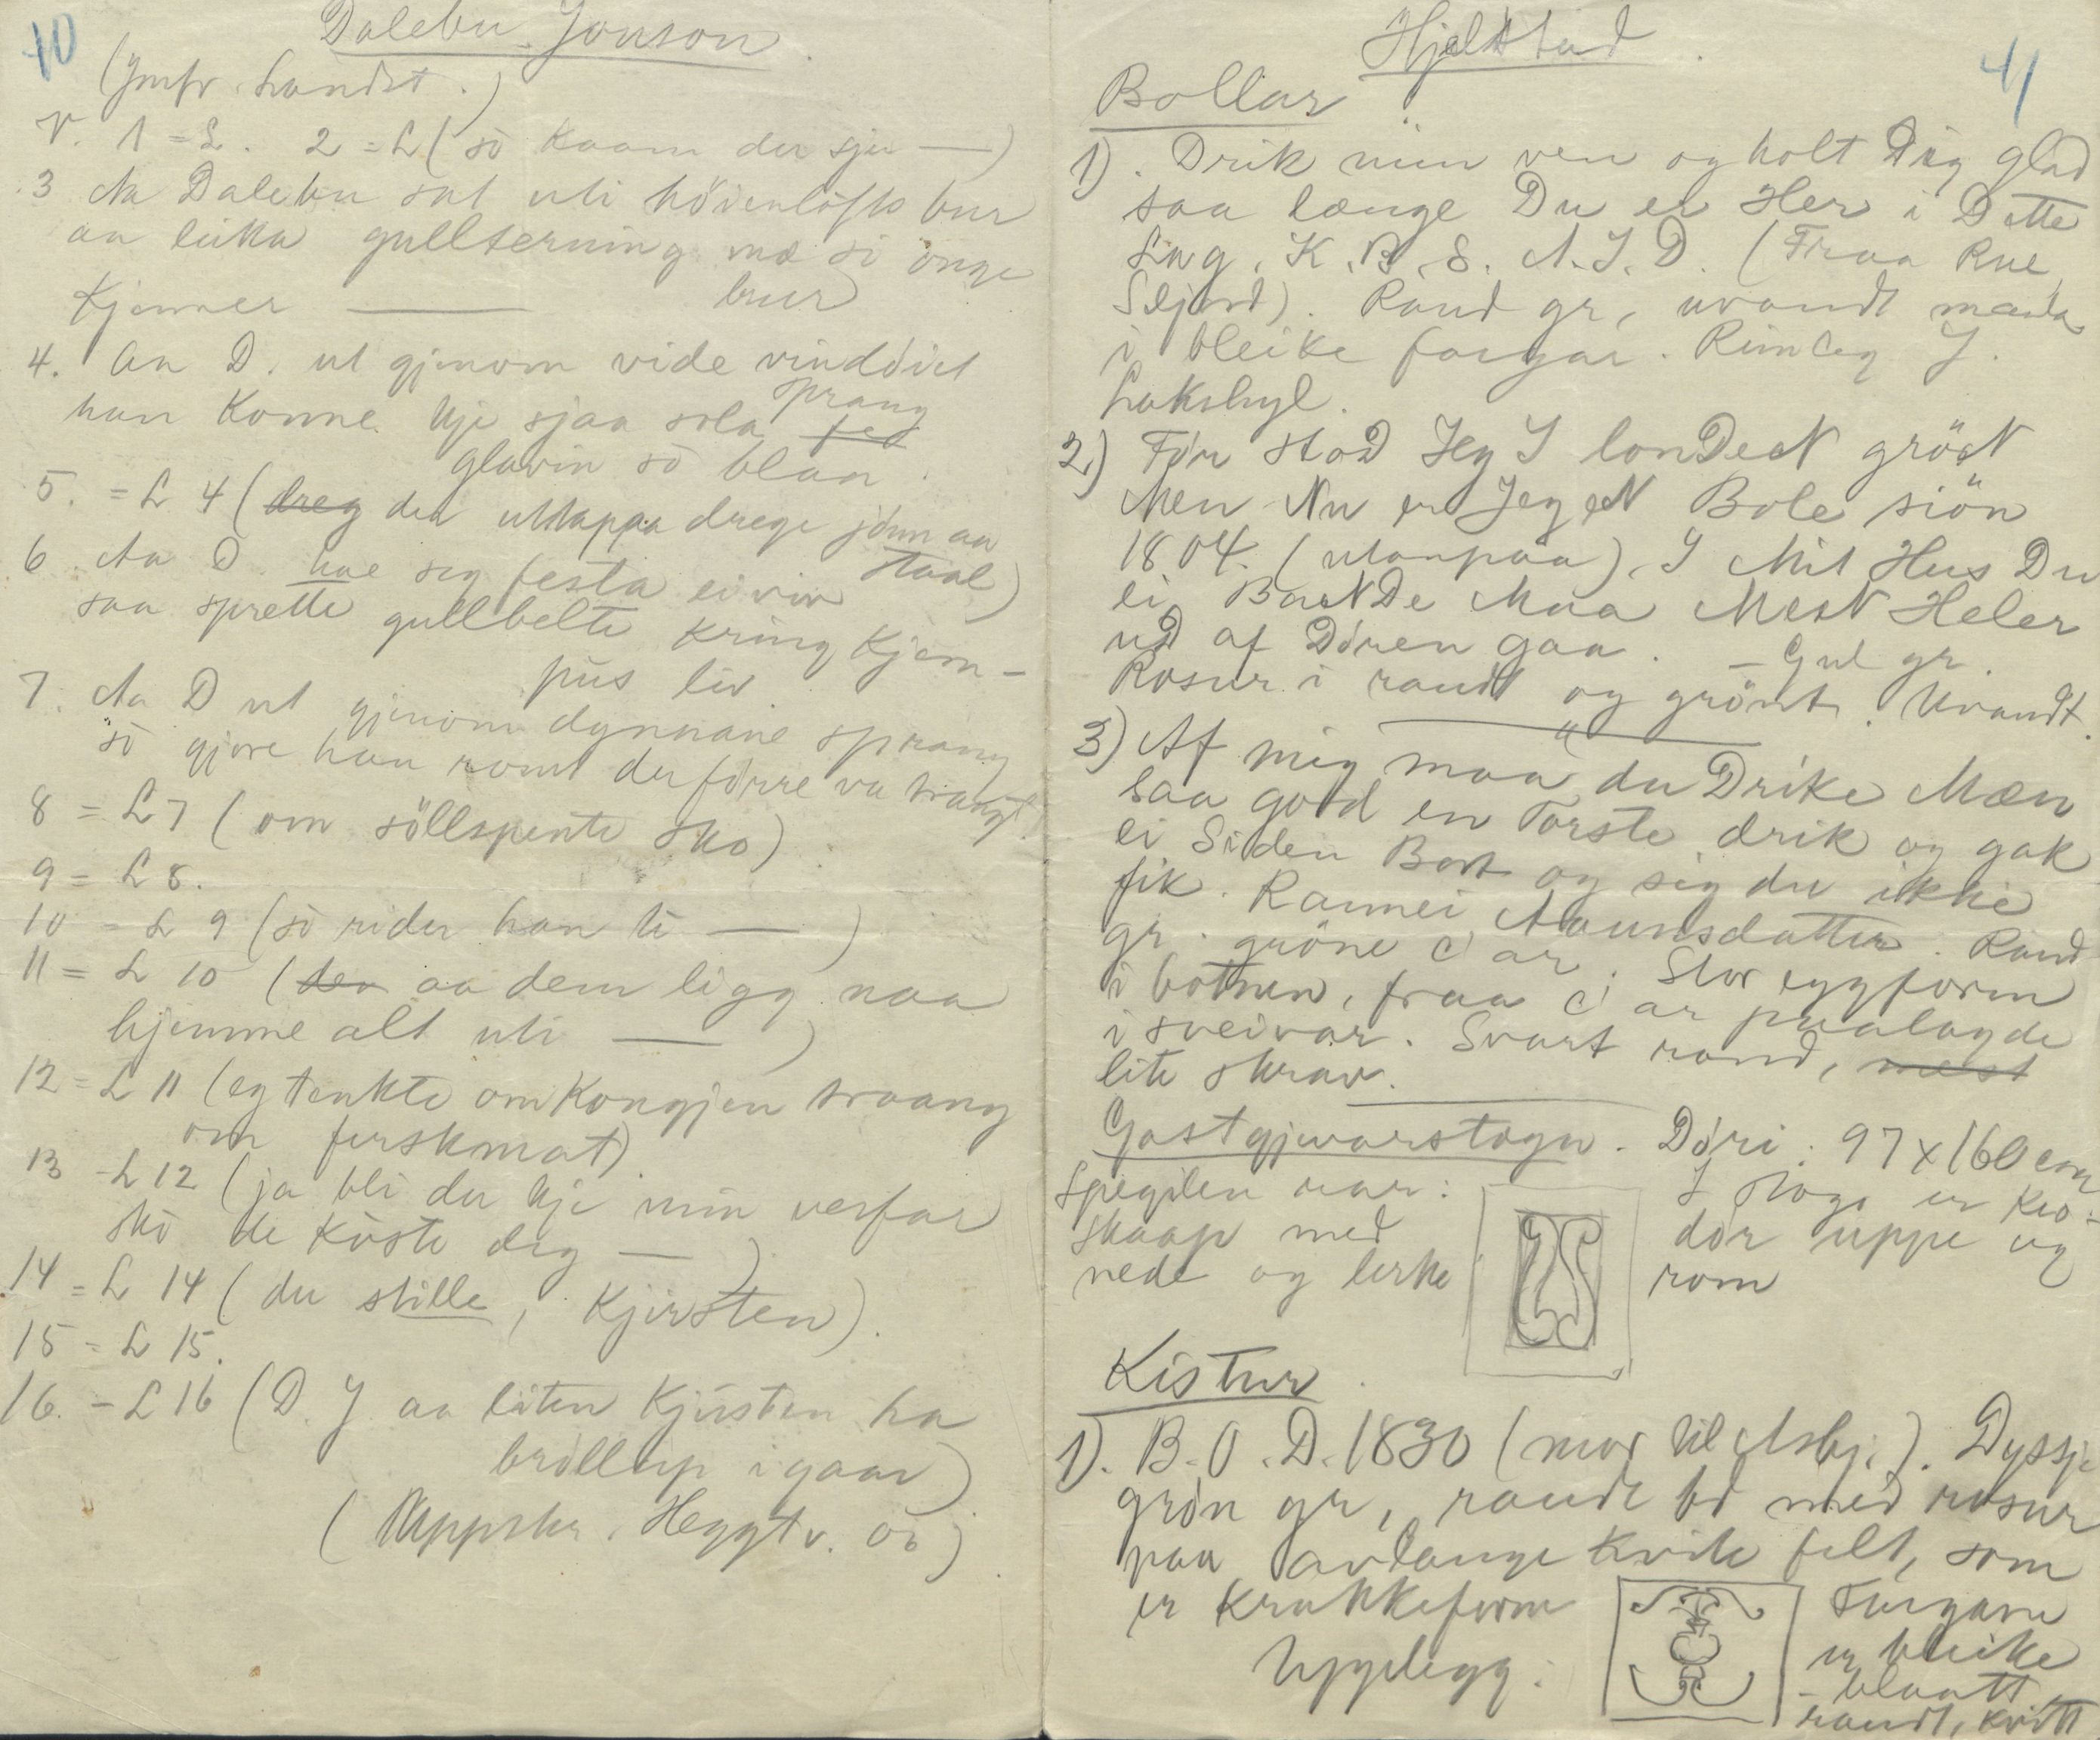 40
Dalebu Jonson
(Jmfr. Landst.)
V. 1 = L. 2 = L (so kaam der sju —)
3 Aa Dalebu sat uti höienlofts bur
aa leika gullterning mæ si onge
Kjemer — brur
4. Aa D. ut gjenom vide vinddöiet
sprang
han konne kje sjaa sola
glavin so blaa.
5. = L 4 (dreg dei uttappaa drege jönn aa
staal)
6. Aa D. hae seg festa ei viv
saa sprette gullbelte kring kjem-
pus liv
7. Aa D ut gjenom dynnane sprang
so gjore han romt der förre va trangt.
8 = L 7 (om söllspente sko).
9 = L 8.
10 = L 9 (so rider han ti —)
11 = L 10 (den aa dem ligg naa
hjemme alt uti —)
12 = L 11 (eg tenkte om Kongjen traang
om ferskmat).
13 = L 12 (ja bli du kje min verfar
sko de köste deg —)
14 = L 14 (du stille, Kjersten).
15 = L 15.
16. = L 16 (D. J. aa liten Kjersten ha
bröllup igaar)
(Uppskr. Heggtv. öö)
41
Hjelstad.
Bollar
1). Drik min ven og holt Dig glad
saa længe Du er Her i Dette
Lag. K. B. S. A. I. D. (Fraa Rue
Seljord). Raud gr, uvandt maala
i bleike fargar. Rimeleg J.
Lakshyl.
2.) För stod Jeg I lonDeN gröN
Men Nu er Jeg eN Bole siön
1804. (utanpaa). I Mit Hus Du
ei BaNDe Maa MeN Heler
uD af Dören gaa. — Gul gr.
Rosur i raudt og grönt. Uvandt.
3) Af mig maa du Drike Mæn
saa god en Törste drik og gak
ei Siden Bort og sig du ikke
fik. Rannei Aaunsdatter. Raud
gr. gröne C'ar. Stor eggform
i botnen, fraa C'ar paalagde
i sveivar. Svart rand, mest
lite skrav.
Gastgjevarstogu. Döri: 97 x 160 cm
Spegilen var: I stoga er kro-
skaap med dör uppe og
nede og lerke rom
Kistur
1). B. O. D. 1830 (mor til Asbj.). Dyssje
grön gr, raudt bd med rosur
paa avlange kvite felt, som
er krakkeforme Fargane
Upplegg: er bleike
- blaatt
raudt, kvitt